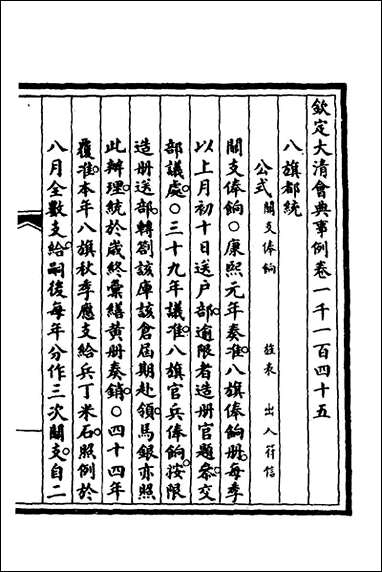 欽定大清會典事例卷一千一百四十五
八旗都統
公式 關支俸餉 旌表 出入符信
關支俸餉○康熙元年奏准八旗俸餉册每季
以上月初十日送户部逾限者造册官題參交
部議處○三十九年議准八旗官兵俸餉按限
造册送部轉劄該庫該倉屆期赴領馬銀亦照
此辦理統於歲終彙繕黃册奏銷○四十四年
覆准本年八旗秋季應支給兵丁米石照例於
八月全數支給嗣後每年分作三次關支自二